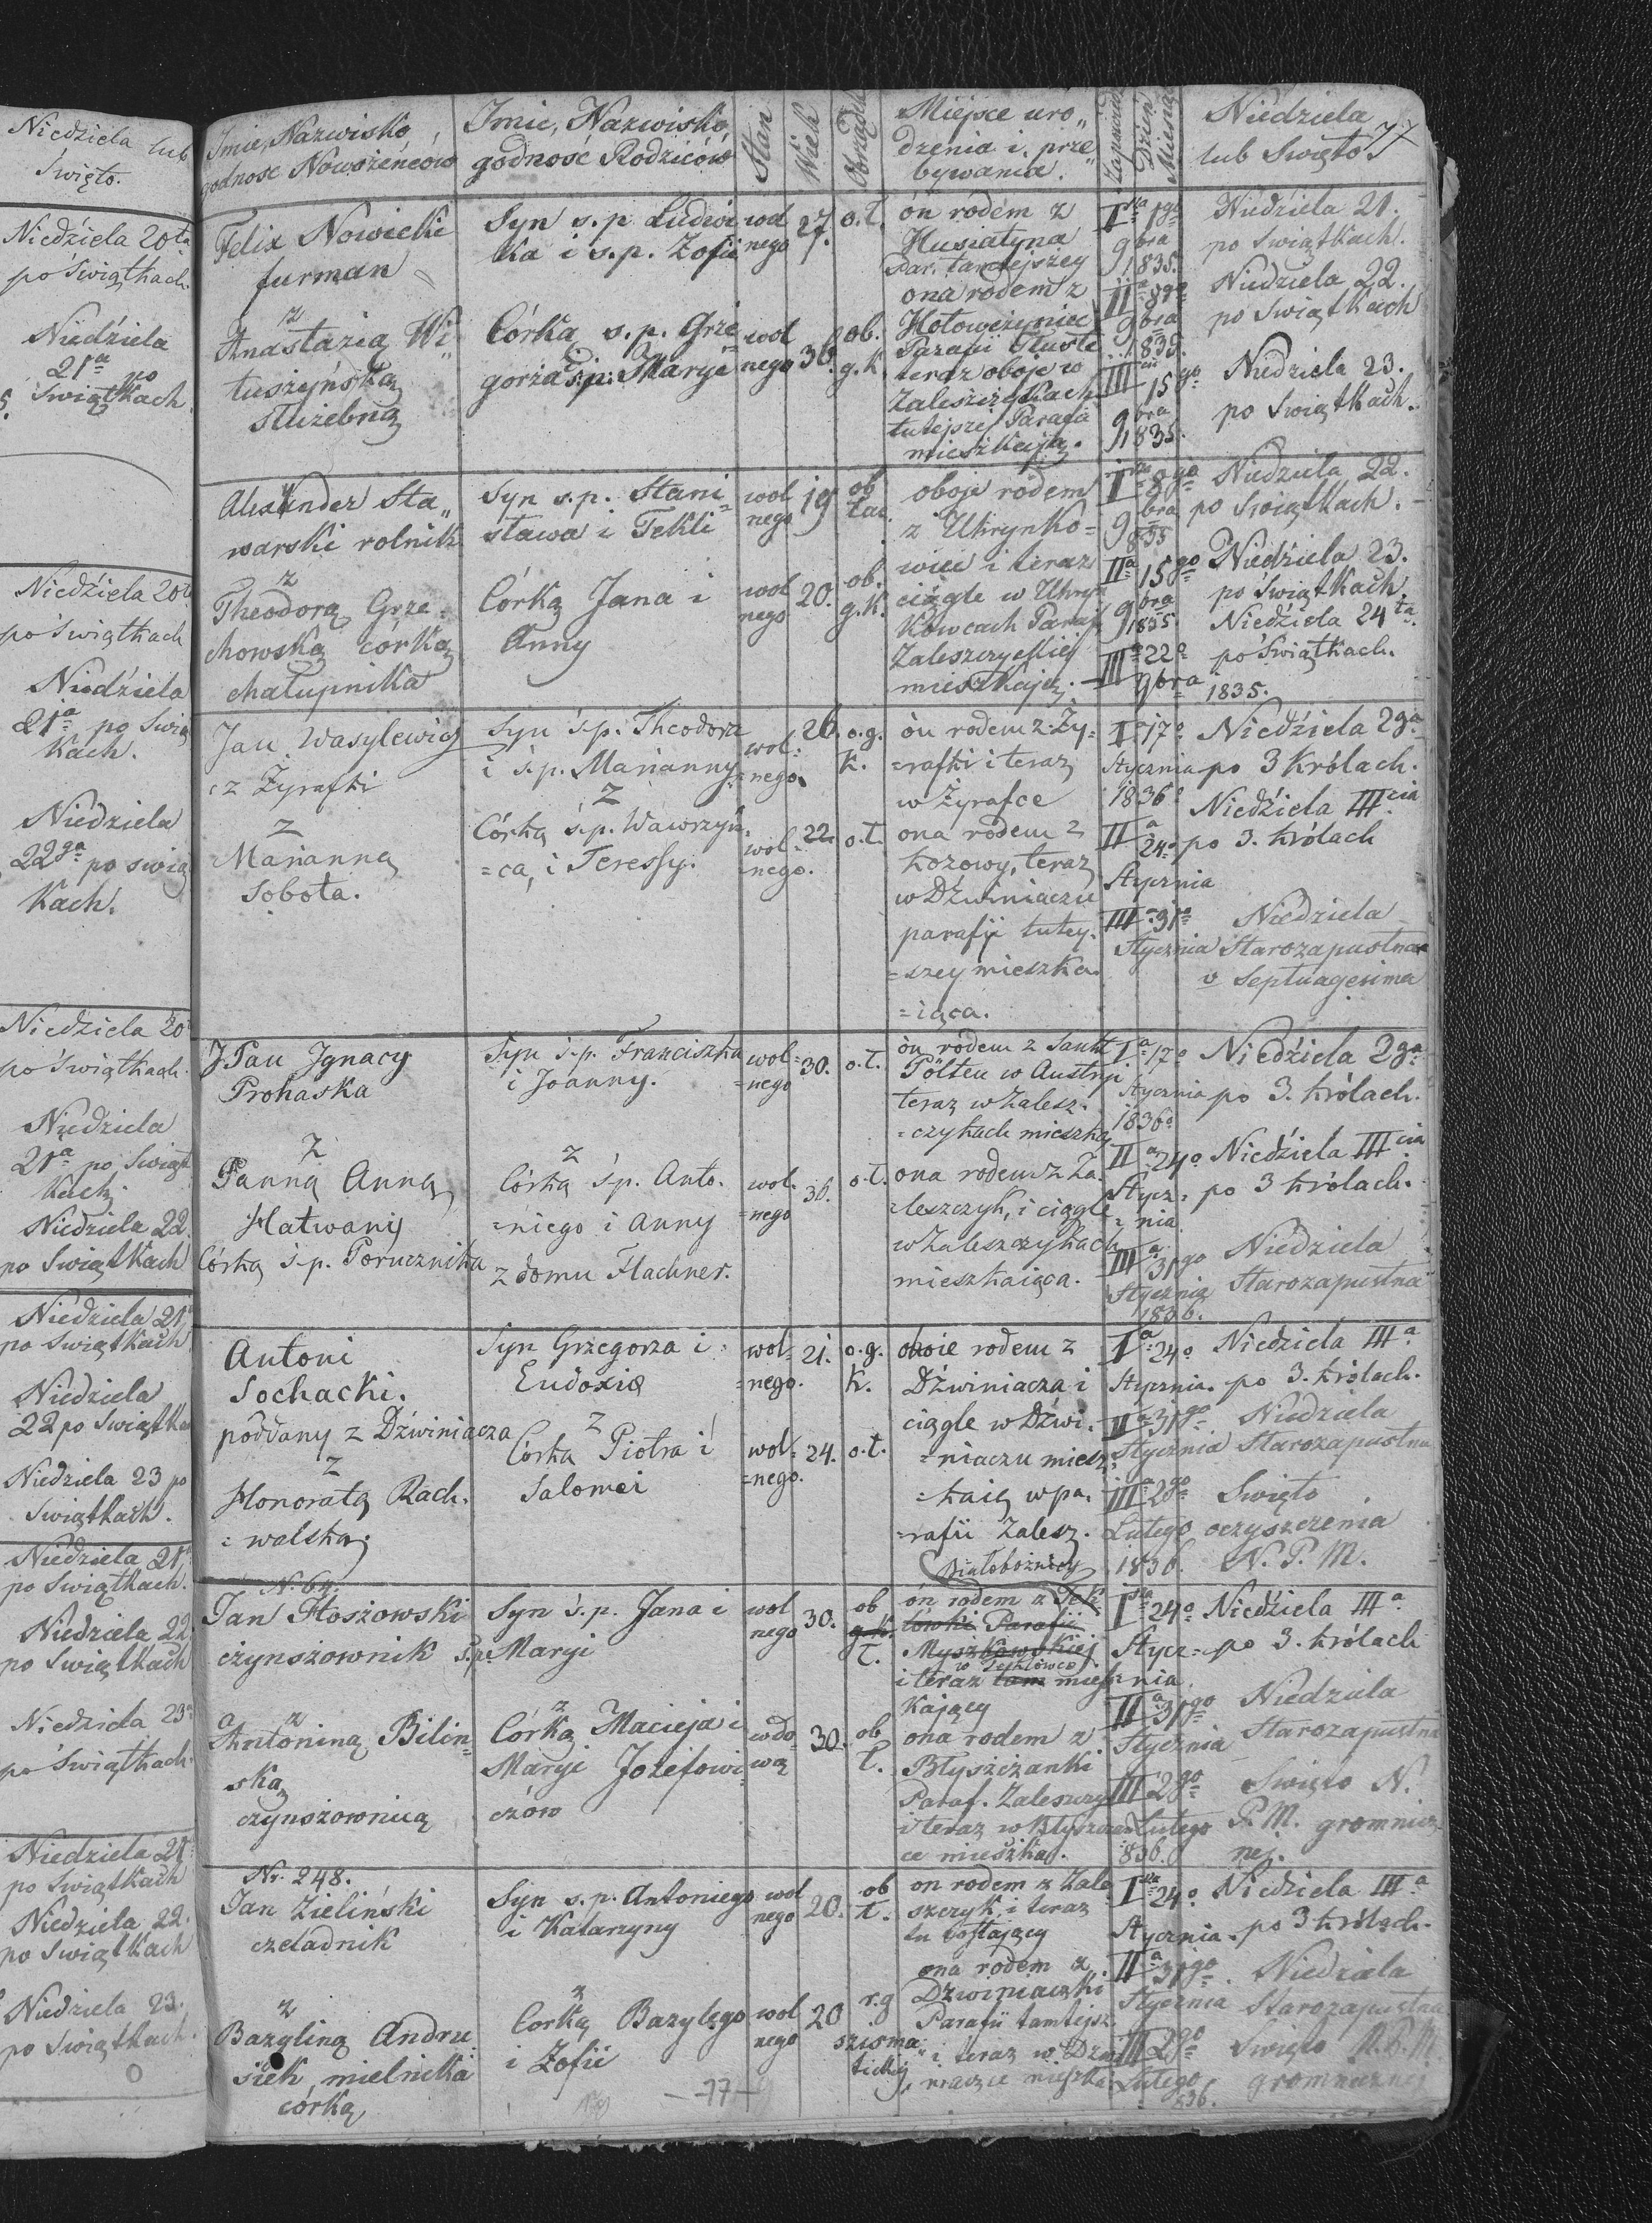 Niedziela lub
Święto.
Niedziela 20ta
po Świątkach.
Niedziela
21a po
Świątkach
Niedziela 20t
po Świątkach
Niedziela
21a po Swią
Kach.
Niedziela
22ga po swią
Kach.
Niedziela 20
po Świątkach.
Niedziela
21a po Swiąt
Kach.
Niedziela 22.
po Swiątkach
Niedziela 21.
po Swiątkach
Niedziela
22 po Swiątka
Niedziela 23 po
Swiątkach.
Niedziela 21.
po Swiątkach.
Niedziela 22
po Swiątkach
Niedziela 23
po Świątkach.
Niedziela 21
po Swiątkach
Niedziela 22.
po Swiątkach
Niedziela 23.
po Swiątkach.
Imie, Nazwisko,
godnosc Nowożeńcow
Imie, Nazwisko,
godnosc Rodziców
Stan
Wiek
Obrządek
Miejsce uro„
dzenia i prze„
bywania.
Zapowiedź
Dzień
Miesiąc
Niedziela
lub Swięto
77
Felix Nowicki
furman
z
Anastazią Wi„
tuszyńską
służebną
Syn s.p. Ludwi
ka i s.p. Zofii
Córką s.p. Grze=
gorza i s.p. Maryi
wol
nego
27.
o.ł.
wol
nego
36.
ob.
g.k.
on rodem z
Husiatyna
Par. tamtejszey
ona rodem z
Hołowczyniec
Parafii Tłuste
teraz oboje w
Zaleszczykach
tutejszej Parafii
mieszkają.
Isza 1go
9bra
1835.
IIa 8go
9bra
1835.
IIIcia
15go
9bra
1835.
Niedziela 21.
po Swiątkach.
Niedziela 22.
po Swiątkach
Niedziela 23.
po Swiątkach.
Alexander Sta„
warski rolnik
z
Theodorą Grze=
chowską corką
chałupnika
Syn s.p. Stani=
sława i Tekli
Córką Jana i
Anny
wol
nego
19
ob
łac.
wol
nego
20.
ob.
g.k.
oboje rodem
z Uhrynko=
wiec i teraz
ciągle w Uhryn
kowcach Paraf.
Zaleszczyckiej
mieszkają.
Isza 8go
9bra
835
IIa 15go
9bra
1835.
IIIa 22o
9bra
1835.
Niedziela 22.
po Swiątkach.
Niedziela 23.
po Świątkach.
Niedziela 24ta.
po Świątkach.
Jan Wasylewicz
z Żyrafki
z
Marianną
Sobota.
Syn s.p. Theodora
i s.p. Marianny
z
Córką s.p. Wawrzyń=
=ca, i Teressy.
wol=
=nego.
26.
o.g.
k.
wol=
=nego.
22
o.ł.
ón rodem z Ży=
=rafki i teraz
w Żyrafce
ona rodem z
Kozowy, teraz
w Dźwiniaczu
parafii tutey=
=szey mieszka=
=iąca.
Ia 17o
Stycznia
1836o
IIa
24o
Stycznia
IIIa 31o
Stycznia
Niedziela 2ga
po 3 Królach.
Niedziela IIIcia
po 3. królach
Niedziela
Starozapustna
v Septuagesima
JPan Jgnacy
Prohaska
z
Panną Anną
Hatwanij
Córką s.p. Porucznika
Syn s.p. Franciszka
i Joanny.
z
Córką s.p. Anto=
=niego i Anny
z domu Hachner.
wol=
=nego
30.
o.ł.
wol=
=nego
36.
o.ł.
ón rodem z Sankt
Pölten w Austryi
teraz w Zalesz=
=czykach mieszka
ona rodem z Za=
=leszczyk, i ciągle
w Zaleszczykach
mieszkaiąca.
Ia 17o
Stycznia
1836o
IIa 24o
Stycz=
=nia
IIIa 31go
Stycznia
1836.
Niedziela 2ga
po 3. królach.
Niedziela IIIcia
po 3 królach.
Niedziela
Starozapustna
Antoni
Sochacki.
poddany z Dźwiniacza
z
Honoratą Rach=
=walską.
Syn Grzegorza i
Eudoxia
z
Córka Piotra i
Salomei
wol=
=nego.
21.
o.g.
k.
wol=
=nego.
24.
o.ł.
oboie rodem z
Dźwiniacza i
ciągle w Dźwi=
=niaczu miesz=
=kaią w pa=
=rafii Zalesz.
Ia 24o
Stycznia.
IIa 31go
Stycznia
IIIa 2go
Lutego
1836.
Niedziela IIIa
po 3. królach.
Niedziela
Starozapustna
Swięto
oczyszczenia
N. P. M.
N. 64.
Jan Hoszowski
czynszownik
z
Antoniną Bilin=
ską
czynszownicą
Syn ś.p. Jana i
s.p. Maryi
z
Córką Macieja i
Maryi Jozefowi=
czów
wol
nego
30.
ob
g.k.
ł.
wdo=
wą
30.
ob
ł.
Białobożnicy
ón rodem z Tek
lówki Parafii
Myszkowskiej
w Teklowce
i teraz tam miesz=
kający
ona rodem z
Błyszczanki
Paraf. Zaleszczy
i teraz w Błyszczan
ce mieszka.
Isza 24o
Stycz=
nia
IIa 31go
Stycznia
III 2go
Lutego
836.
Niedziela IIIa
po 3. królach
Niedziela
Starozapustna
Swięto N.
P. M. gromnicz
nej.
Nr. 248.
Jan Zieliński
czeladnik
z
Bazyliną Andru
siek mielnika
córką
Syn s.p. Antoniego
i Katarzyny
z
Corką Bazylego
i Zofii
wol
nego
20.
ob
ł.
wol
nego
20
r.g
szisma
tickiej
on rodem z Zale
szczyk, i teraz
tu zostający
ona rodem z
Dzwiniaczki
Parafii tamtejsz.
i teraz w Dzwi
niaczce mieszka
Isza 24o
Stycznia.
IIa 31go
Stycznia
III 2go
Lutego
836.
Niedziela IIIa
po 3 królach.
Niedziela
Starozapustna
Swięto N.P.M.
gromnicznej
-77-